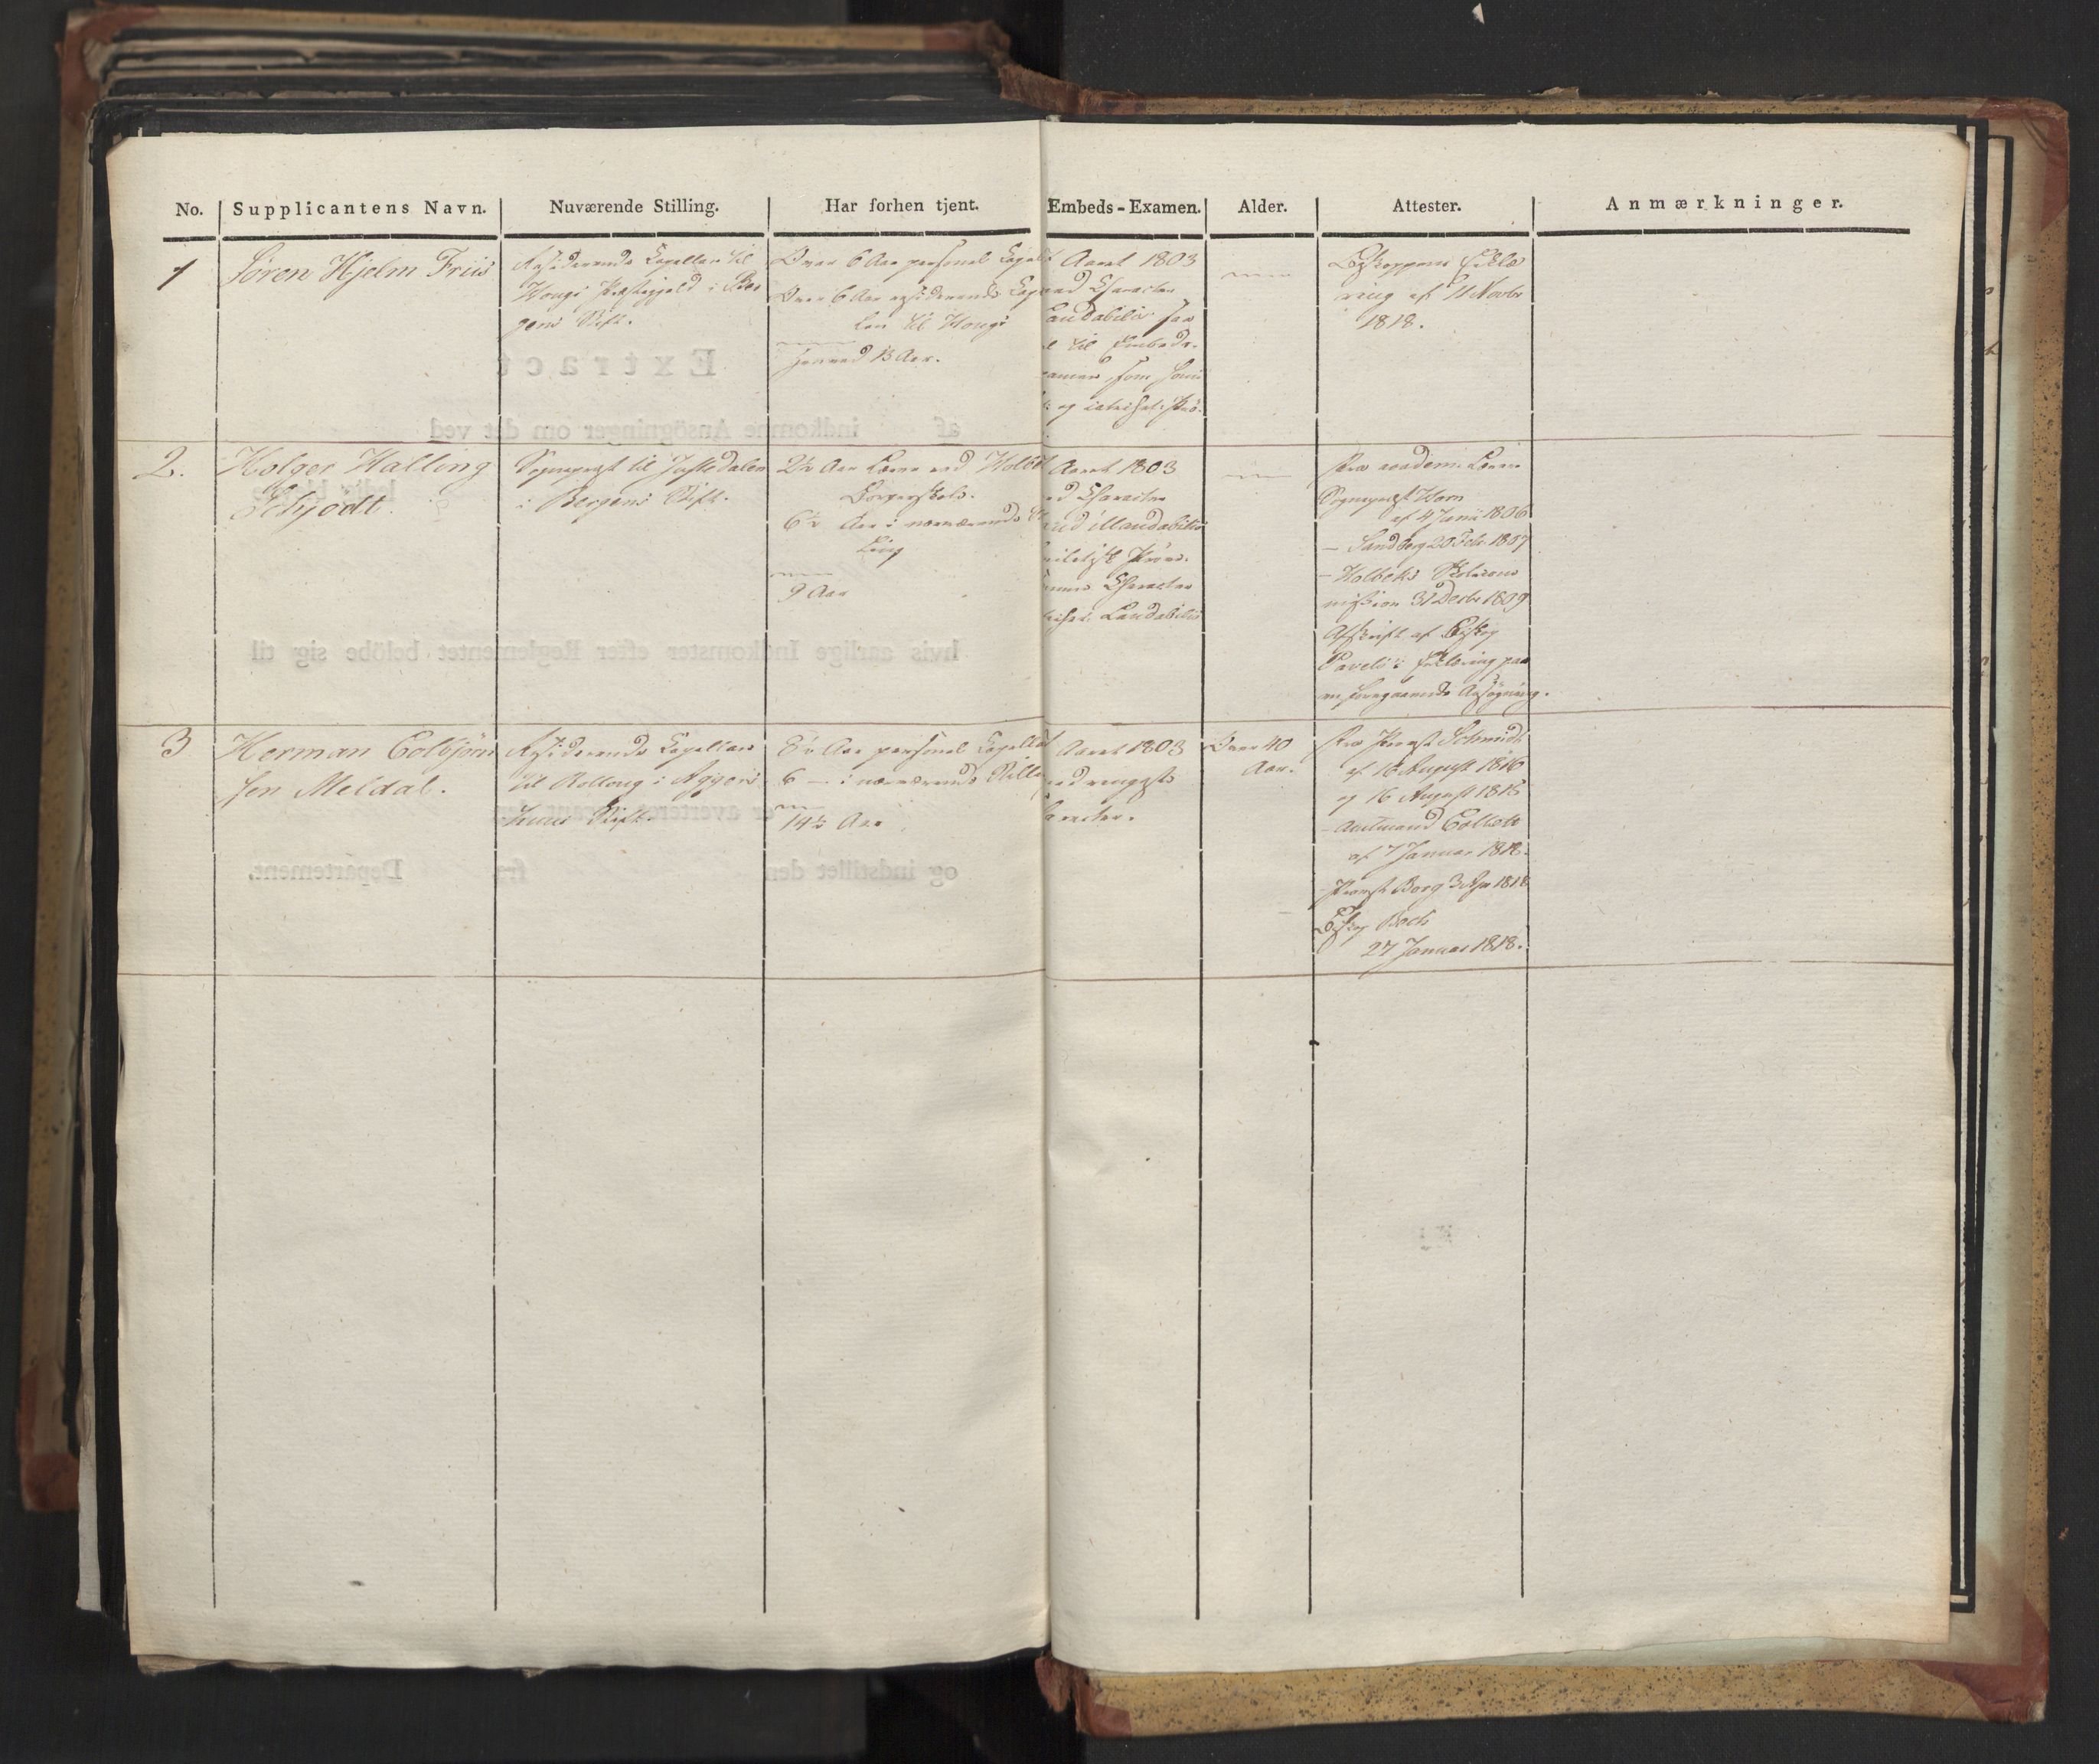 No.
Supplicantens Navn.
Nuværende Stilling.
Har forhen tjent.
Embeds-Examen.
Alder.
Attester.
Anmærkninger.
1
Søren Hjelm Friis
Residerende Capellan til
Præstegjeld i Ber
gens Stift.
Over 6 Aar personel Capel
Over 6 Aar residerende Cap
lan til
henved 13 Aar.
Aaret 1803
med Character
Laudabilis saa
til Embeds-
amen, som
og catechet: Prø-
Biskoppens Erklæ
ring af 11 Novbr
1818.
2.
Holger Halling
Schjödt.
Sognepræst til Justedalen
i Bergens Stift.
2½ Aar Lærer ved Holbek
Borgerskole.
6½ Aar i nærværende
ling
9 Aar
Aaret 1803
ed Character
aud illaudabilis
Prøve.
Character
Laudabilis
Fra academ. Lærer
Sognepræst Horn
af 4 Junii 1806
— Sandberg 20 Febr. 1807
— Holbeks Skolecom
mission 31 Decbr 1809
Afskrift af Biskop
Pavels's Erklæring paa
en foregaaende Ansøgning.
3
Herman Colbjörn
sen Meldal.
Residerende Capellan
til Rollaug i Agger
huus Stift.
8½ Aar personel Capellan
6 — i nærværende Stilli
14½ Aar
Aaret 1803
ed ringeste
aracter.
Over 40
Aar.
Fra Provst Schmidt
af 16 August 1816
og 16 August 1815
Amtmand Collett
af 7 Januar 1818.
Provst Borg 3 Apr 1818
Biskop Bech
27 Januar 1818.
Extract
af indkomne Ansögninger om det ved
hvis aarlige Indkomster efter Reglementet belöbe sig til
og indstillet den
fra
Departement.